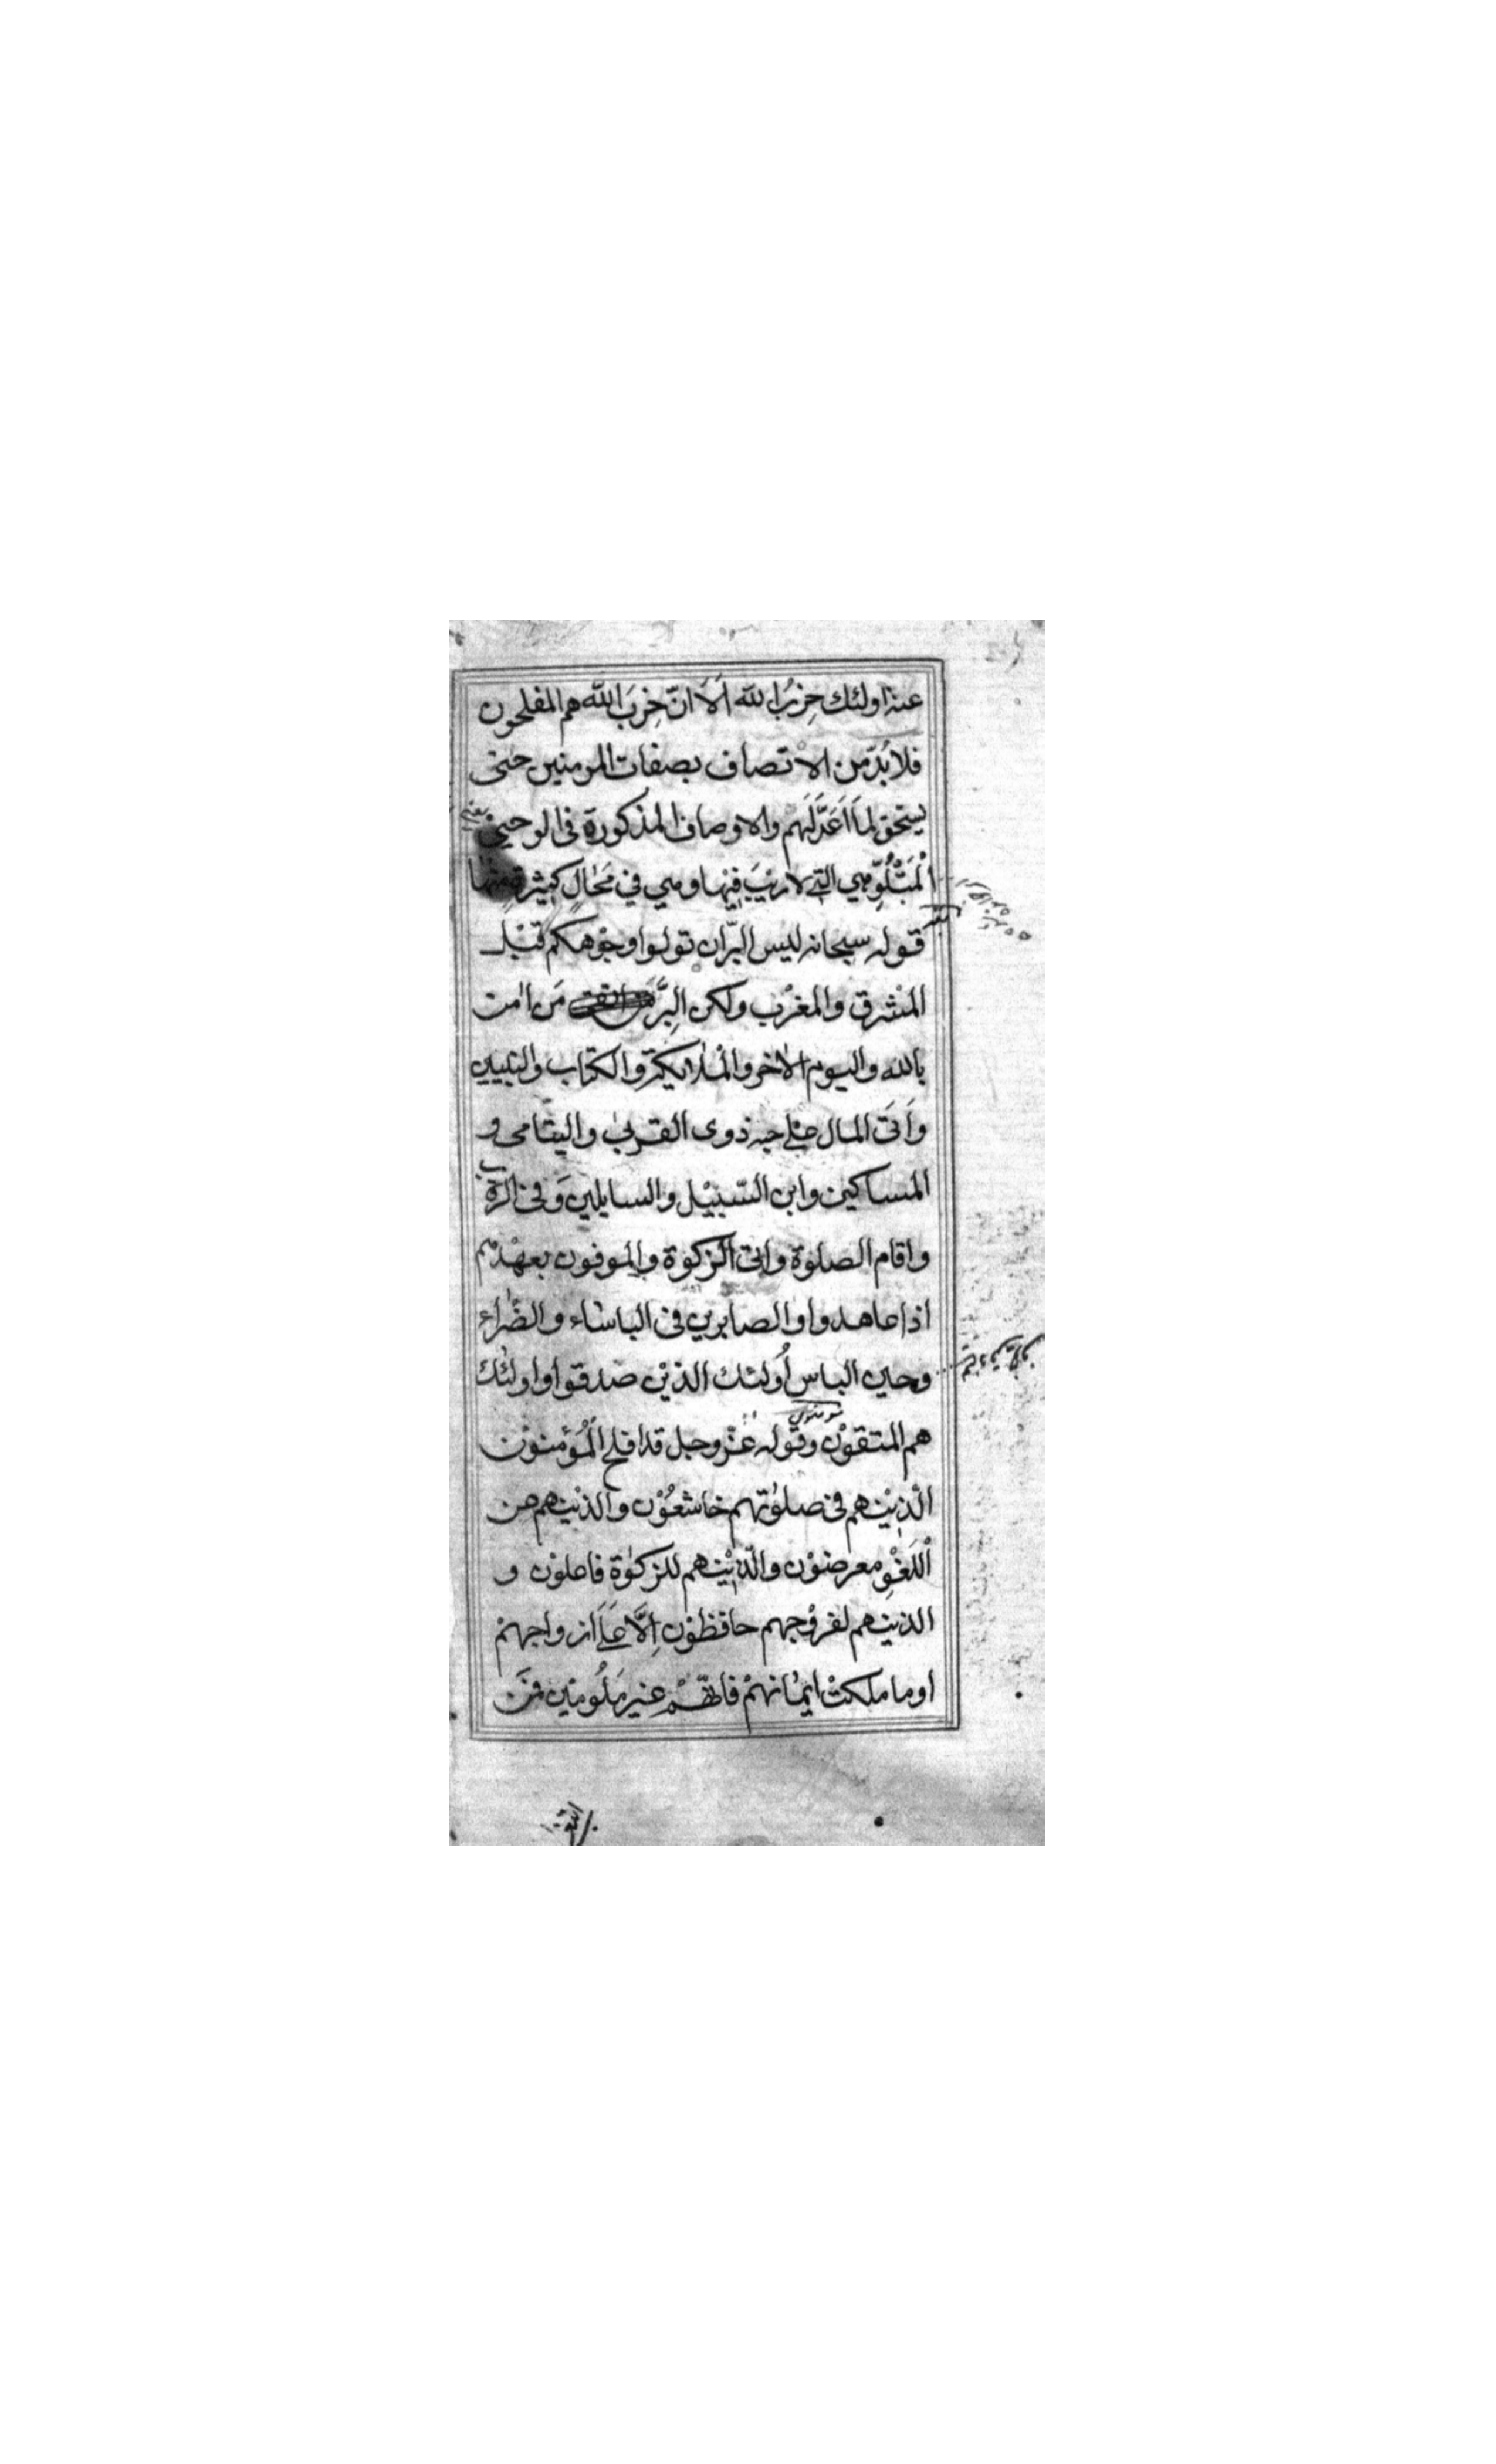 عنه اولئك حِزبُ الله اَلَا انّ حِزبَ الله هم المفلحون
فلا بُدّ من الاتصاف بصفات المومنين حتى
يستحق لما اَعَدَّ لَهُم والاوصاف المذكورة فى الوحى
الْمَتْلُوِّ هي التي لا ريْبَ فِيْها وهي في مَحَالٍ كثيرة منها
قوله سبحانه ليس البرّ ان تولوا وجوهكم قبل
المشرق والمغرب ولكن البِرَّ مَن اٰمن
بالله واليوم الاخر والملائكة والكتاب والنبيين
واَتَى المال على حبه ذوى القربى واليتامى و
المساكين وابن السّبيل والسايلين وَفى الرقاب
واقام الصلوة واتى الزكوة والموفون بعهدهم
اذا عاهدوا والصابرين فى الباساء والضّراء
وحين الباس اُولئك الذين صدقوا واولئك
هم المتقوْن وقوله عزّ وجل قد افلح الْمُؤمنوْن
الّذِيْن هم فى صلوٰتهم خاشعُوْن والذيْن هم عن
اْللَغْوِ معرضوْن والّذِيْن هم للزكوٰة فاعلوْن و
الذين هم لفروْجهم حافظوْن اِلَّا عَلَى ازواجهمْ
او ما ملكتْ ايمانهمْ فانّهمْ غير مَلُومين فمَن